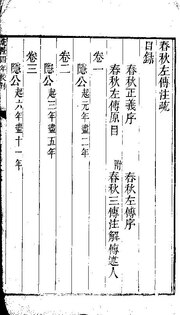 春秋左傳注疏
目錄
春秋正義序 春秋左傳序
春秋左傳原目 附春秋三傳注解傳述人
卷一
隱公起元年盡二年
卷二
隱公起三年盡五年
卷三
隱公起六年盡十一年